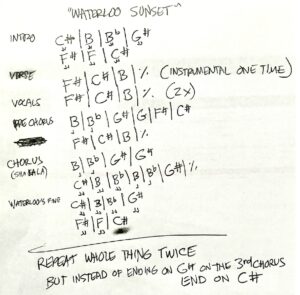 "WATERLOO SUNSET"
INTRO C# | B | Bb | G#
F# | F | C#
VERSE F# | C# | B | % (INSTRUMENTAL ONE TIME)
VOCALS F# | C# | B | % (2X)
PRE CHORUS B | Bb | G# | G | F# | C#
F# | C# | B | %
CHORUS B | Bb | G# | G#
(SHA LA LA) C# | B | Bb | B | Bb | G# | %
WATERLOO'S FINE C# | B | Bb | G#
F# | F | C#
REPEAT WHOLE THING TWICE
BUT INSTEAD OF ENDING ON G# ON THE 3rd CHORUS
END ON C#